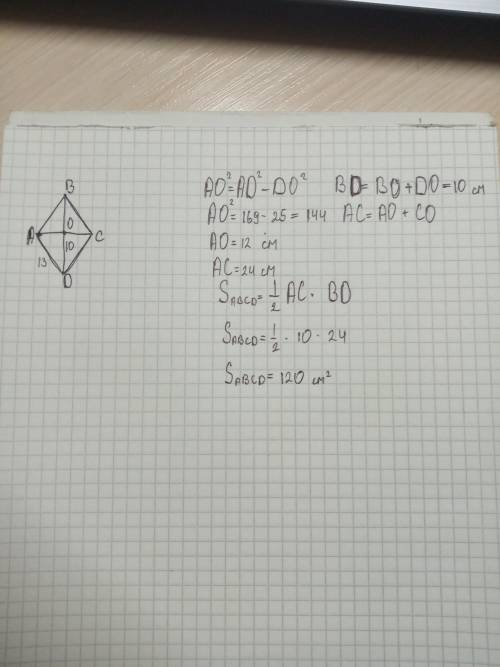 B
O
A
C
10
13
D
AO²=AD²-DO² BD=BO+DO=10 см
AO²=169-25=144 AC=AO+CO
AO=12 см
AC=24 см
S_ABCD=1/2 AC · BD
S_ABCD=1/2 · 10 · 24
S_ABCD=120 см²